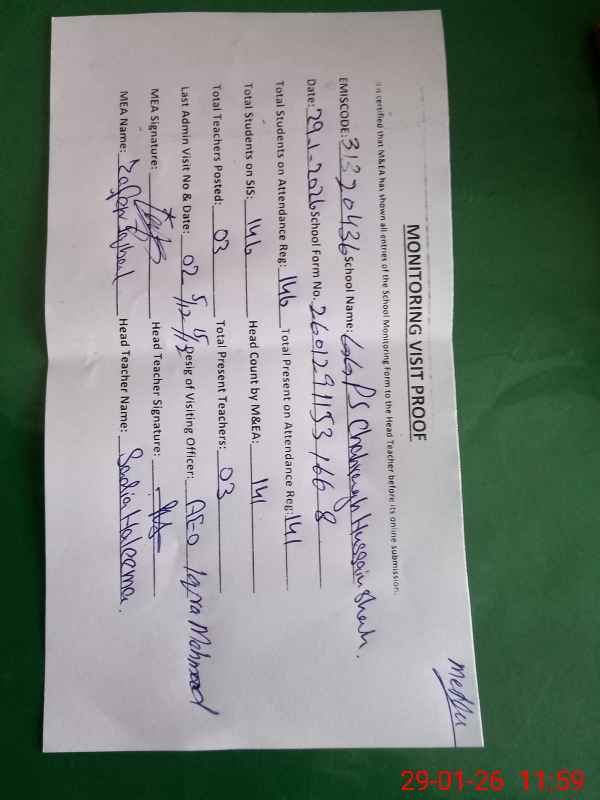 MONITORING VISIT PROOF
It is certified that M&EA has shown all entries of the School Monitoring Form to the Head Teacher before its online submission.
EMISCODE: 31320436 School Name: GGPS Hussain Shah.
Date: 29-1-2026 School Form No. 2601291153166 8
Total Students on Attendance Reg: 146 Total Present on Attendance Reg: 141
Total Students on SIS: 146 Head Count by M&EA: 141
Total Teachers Posted: 03 Total Present Teachers: 03
Last Admin Visit No & Date: 02 Desig of Visiting Officer: AEO Iqra Mehmood
MEA Signature: Head Teacher Signature:
MEA Name: Head Teacher Name: Sadia Haleema.
29-01-26 11:59